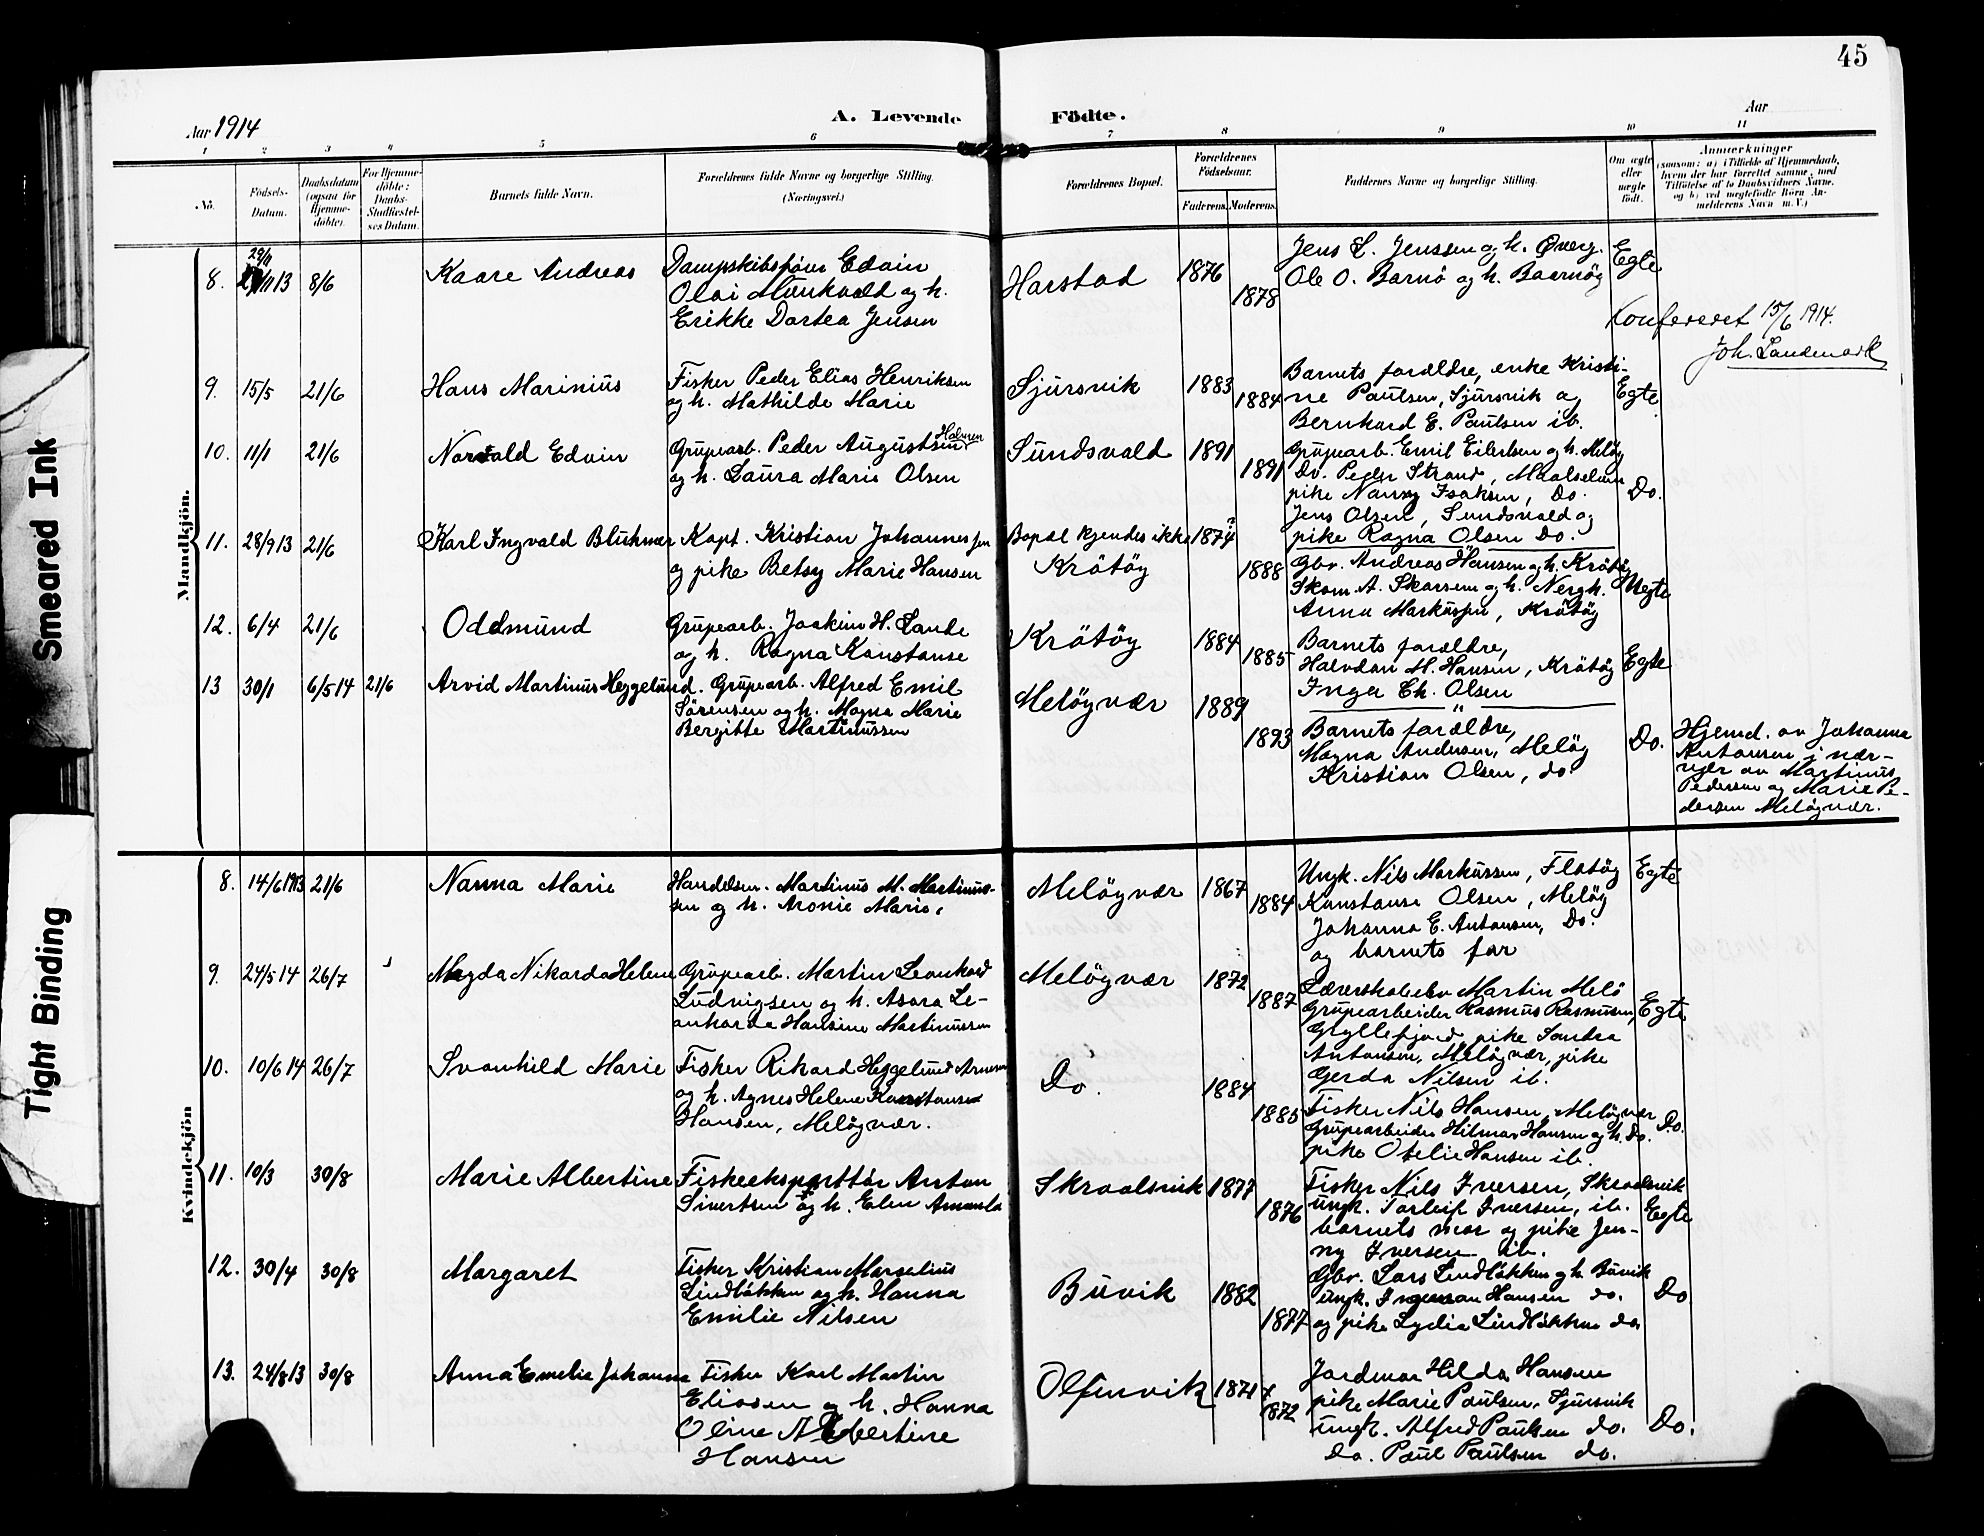 45
Aar 1914
A. Levende Födte.
Aar
1 2 3 4 5 6 7 8 9 10 11
No.
Födsels-
Datum.
Daabsdatum
(ogsaa for
Hjemme-
döbte).
For Hjemme-
döbte:
Daabs-
Stadfæstel-
ses Datum.
Barnets fulde Navn.
Forældrenes fulde Navne og borgerlige Stilling.
(Næringsvei.)
Forældrenes Bopæl.
Forældrenes
Födselsaar.
Faderens. Moderens.
Faddernes Navne og borgerlige Stilling.
Om ægte
eller
uægte
födt.
Anmærkninger
(saasom: a) i Tilfælde af Hjemmedaab,
hvem der har forrettet samme, med
Tilföielse af to Daabsvidners Navne,
og b) ved uægtefödte Börn An-
melderens Navn m. V.)
Mandkjön.
8. 29/11 13 8/6 Kaare Andreas
Dampskibsfører Edvin
Olai Munkvold og h.
Erikke Dortea Jensen
Harstad 1876 1878
Jens L. Jenssen og h. Överg.
Ole O. Barnö og h. Baarnög
Egte
Konfereret 15/6 1914.
Joh. Landmark
9. 15/5 21/6 Hans Marinius
Fisker Peder Elias Henriksen
og h. Mathilde Marie
Sjursvik 1883 1884
Barnets forældre, enke Kristi-
ne Paulsen, Sjursvik og
Bernhard E. Paulsen ib.
Egte.
10. 11/1 21/6 Norvald Edvin
Grupearb. Peder Augustsen Halvsen
og h. Laura Marie Olsen
Sundsvald 1891 1891
Grupearb. Emil Eilertsen og h. Melög
Do. Peder Strand, Maalselven
pike Nanny Isaksen, Do.
Jens Olsen, Sundsvald og
pike Ragna Olsen Do.
Do.
11. 28/9 13 21/6 Karl Ingvald Bluhmer
Kapt. Kristian Johannessen
og pike Betsy Marie Hansen
Bopæl kjendes ikke
Krötöy
1874? 1888
Gbr. Andreas Hansen og h. Krötöy
Skom. A. Skarsem og h. Nergh.
Anna Markussen, Krötöy
Uegte
12. 6/4 21/6 Oddmund
Grupearb. Joakim H. Lande
og h. Ragna Konstanse
Krötöy 1884 1885
Barnets forældre,
Halvdan M. Hansen, Krötöy
Inga Ch. Olsen "
Egte
13 30/1 6/5 14 21/6 Arvid Martinus Heggelund.
Grupearb. Alfred Emil
Sörensen og h. Magna Marie
Bergitte Martinussen
Melöyvær 1889 1893
Barnets forældre,
Magna Andersen, Melöy
Kristian Olsen, do.
Do.
Hjemd. av Johanna
Antonsen i nær-
vær av Martinus
Pedersen og Marie Pe-
dersen Melöyvær.
Kvindekjön
8. 14/6 1913 21/6 Nanna Marie
Handelsm. Martinus M. Martinus-
sen og h. Aronie Marie.
Melöyvær 1867 1884
Ungk. Nils Markussen, Flatöy
Konstanse Olsen, Melöy
Johanna E. Antonsen, Do.
og barnets far
Egte
9. 24/5 14 26/7 Magda Nikarda Helene
Grupearb. Martin Leonhard
Ludvigsen og h. Asora Le-
onharda Hansine Martinussen
Melöyvær 1872 1887
Lærerskoleelev Martin Melö
Grupearbeider Rasmus Rasmussen,
Gryllefjord, pike Sandra
Antonsen, Melöyvær, pike
Gerda Nilsen ib.
Egte
10. 10/6 14 26/7 Svanhild Marie
Fisker Rikard Heggelund Arnesen
og h. Agnes Helene Konstanse
Hansen, Melöyvær.
Do. 1884 1885
Fisker Nils Hansen, Melöyvær
Grupearbeider Hilmar Hansen og h. Do.
pike Otelie Hansen ib.
Do.
11. 10/3 30/8 Marie Albertine
Fiskeeksportör Anton
Sivertsen og h. Elen Amanda
Skraalsvik 1877 1876
Fisker Nils Iversen, Skraalsvik
ungk. Torleif Iversen, ib.
barnets mor og pike Jen-
ny Iversen ib.
Egte
12. 30/4 30/8 Margaret
Fisker Kristian Marselius
Lindløkken og h. Hanna
Emilie Nilsen
Buvik 1882 1877
Gbr. Lars Lindløkken og h. Buvik
ungk. Ingeman Hansen do.
og pike Lydia Lindløkken do.
Do
13. 24/8 13 30/8 Anna Emelie Johanna
Fisker Karl Martin
Eliasen og h. Hanna
Oline Albertine
Hansen
Olfinvik 1874 1872
Jordmor Hilda Hansen
pike Marie Paulsen, Sjursvik
ungk. Alfred Paulsen do.
Do. Paul Paulsen do.
Do.
Smeared Ink
Tight Binding